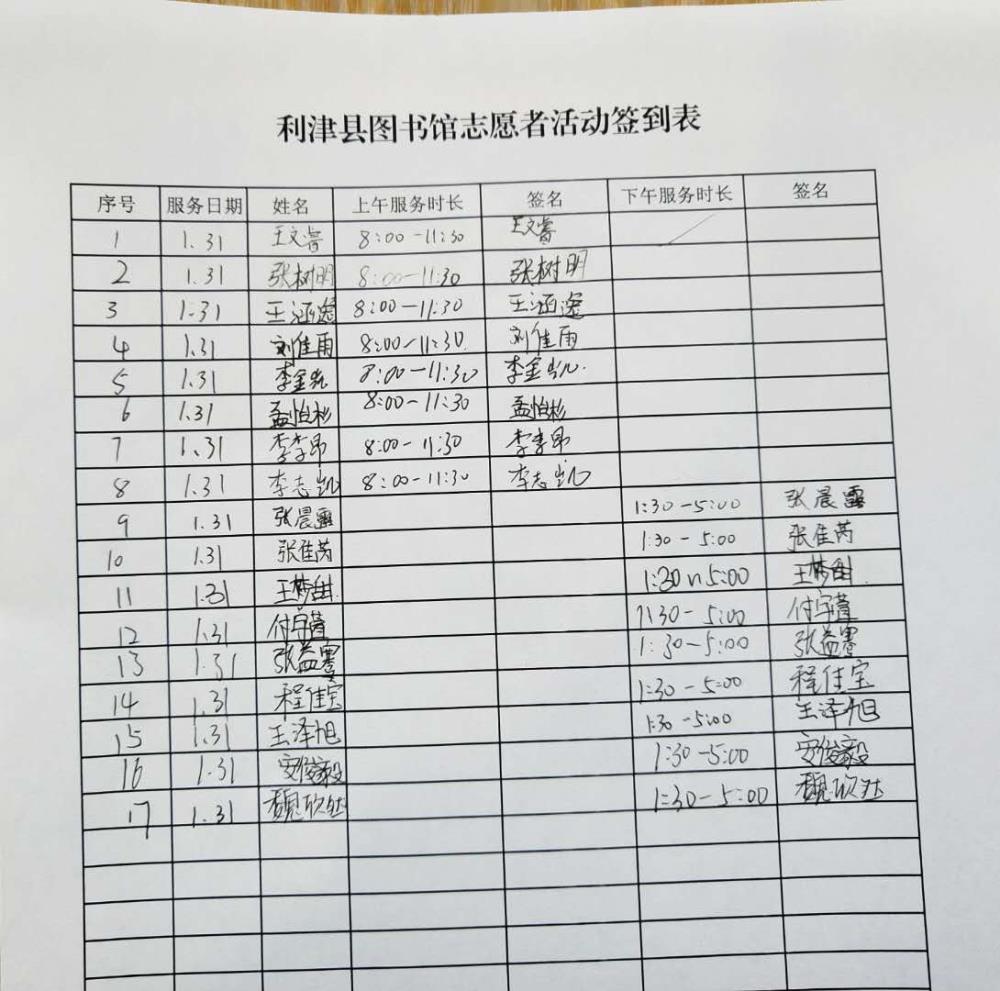 利津县图书馆志愿者活动签到表
序号 服务日期 姓名 上午服务时长 签名 下午服务时长 签名
1 1.31 王文睿 8:00-11:30 王文睿
2 1.31 张树明 8:00-11:30 张树明
3 1.31 王涵逸 8:00-11:30 王涵逸
4 1.31 刘佳雨 8:00-11:30 刘佳雨
5 1.31 李金凯 8:00-11:30 李金凯
6 1.31 孟怡彬 8:00-11:30 孟怡彬
7 1.31 李 8:00-11:30 李
8 1.31 李志凯 8:00-11:30 李志凯
9 1.31 张晨露 1:30-5:00 张晨露
10 1.31 张佳芮 1:30-5:00 张佳芮
11 1.31 王梦甜 1:30~5:00 王梦甜
12 1.31 付宇萱 1:30-5:00 付宇萱
13 1.31 张益 1:30-5:00 张益
14 1.31 程佳宝 1:30-5:00 程佳宝
15 1.31 王泽旭 1:30-5:00 王泽旭
16 1.31 安俊毅 1:30-5:00 安俊毅
17 1.31 魏欣 1:30-5:00 魏欣